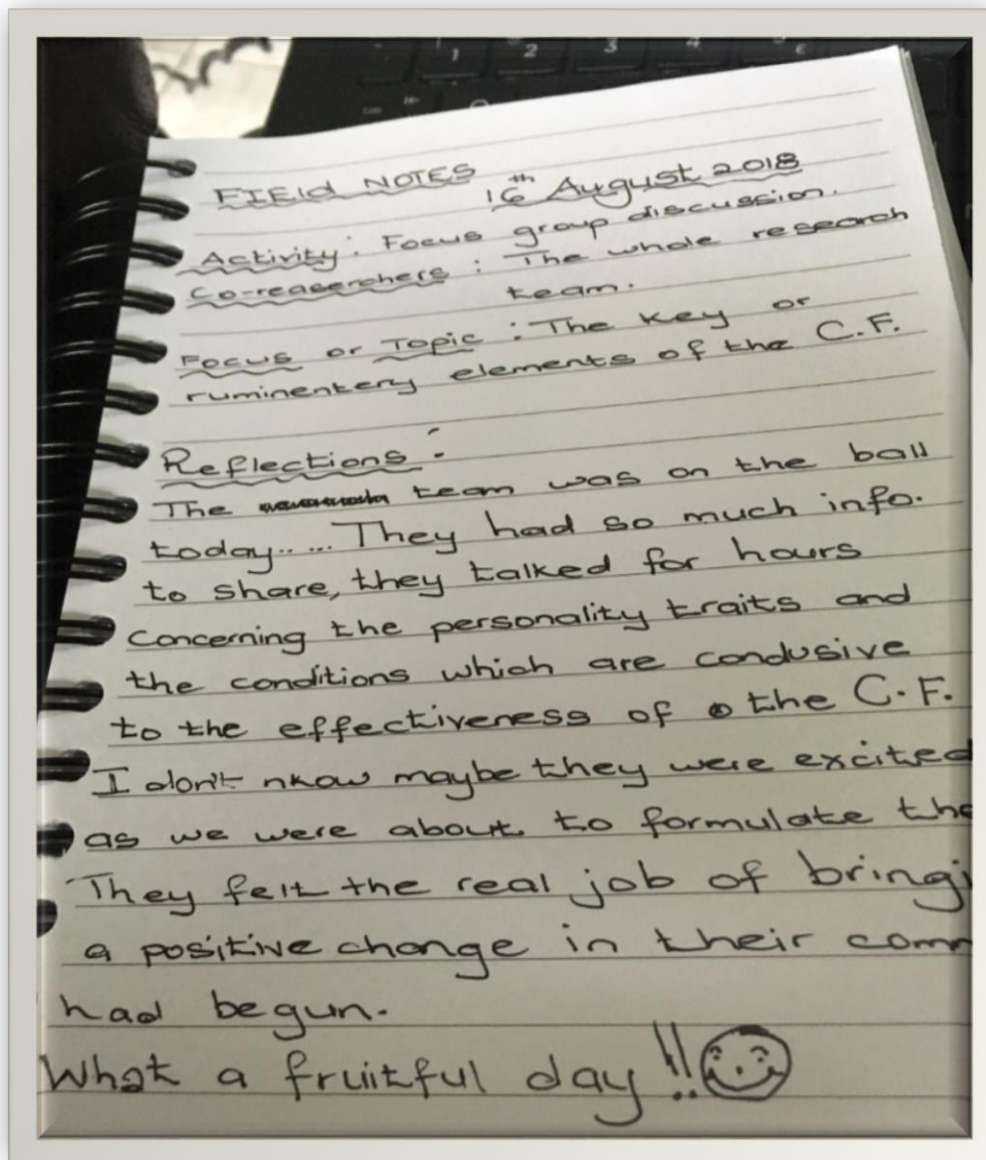 FIEld NOTES
16th August 2018
Activity: Focus group discussion.
Co-reaserchers: The whole research
team.
Focus or Topic: The key or
rumintery elements of the C.F.
Reflections:-
The team was on the ball
today..... They had so much info.
to share, they talked for hours
concerning the personality traits and
the conditions which are condusive
to the effectiveness of the C.F.
I don't nkow maybe they were excited
as we were about to formulate the
They felt the real job of bringi
a positive change in their comm
had begun.
What a fruitful day!!